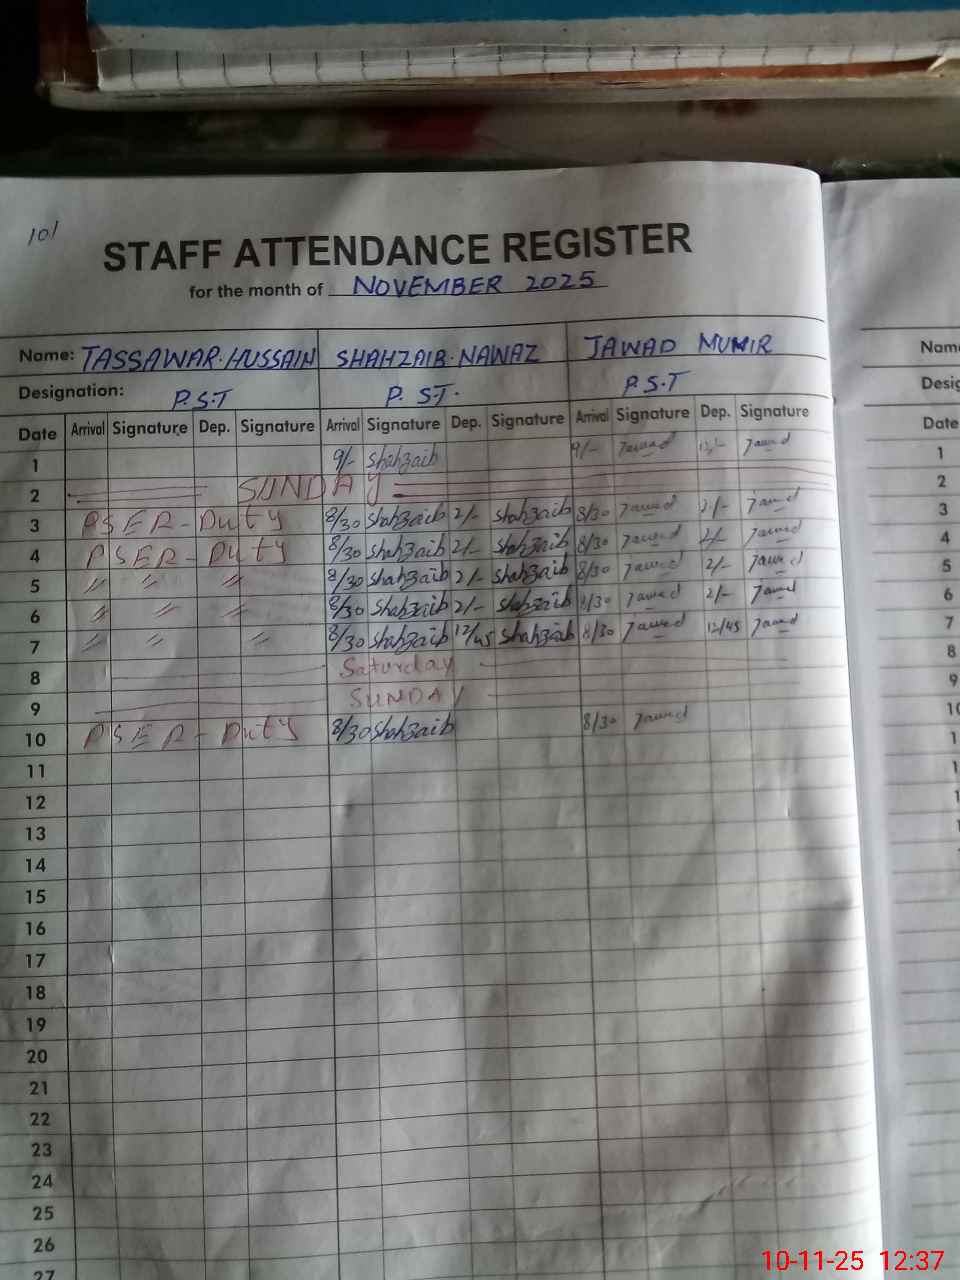 101
STAFF ATTENDANCE REGISTER
for the month of NOVEMBER 2025
Name: TASSAWAR.HUSSAIN SHAHZAIB.NAWAZ JAWAD MUNIR Name
Designation: P.S.T P. S.T. P.S.T Desig
Date Arrival Signature Dep. Signature Arrival Signature Dep. Signature Arrival Signature Dep. Signature Date
1 9/- Shahzaib 9/- Jawad Jawad 1
2 SUNDAY 2
3 PSER-Duty 8/30 Shahzaib 2/- Shahzaib 8/30 Jawad 2/- Jawad 3
4 PSER-Duty 8/30 Shahzaib 2/- Shahzaib 8/30 Jawad 2/- Jawad 4
5 〃 〃 〃 8/30 Shahzaib 2/- Shahzaib 8/30 Jawad 2/- Jawad 5
6 〃 〃 〃 8/30 Shahzaib 2/- Shahzaib 8/30 Jawad 2/- Jawad 6
7 〃 〃 〃 8/30 Shahzaib 12/45 Shahzaib 8/30 Jawad 12/45 Jawad 7
8 Saturday 8
9 SUNDAY 9
10 PSER-Duty 8/30 Shahzaib 8/30 Jawad 10
11
12
13
14
15
16
17
18
19
20
21
22
23
24
25
26
27
10-11-25 12:37